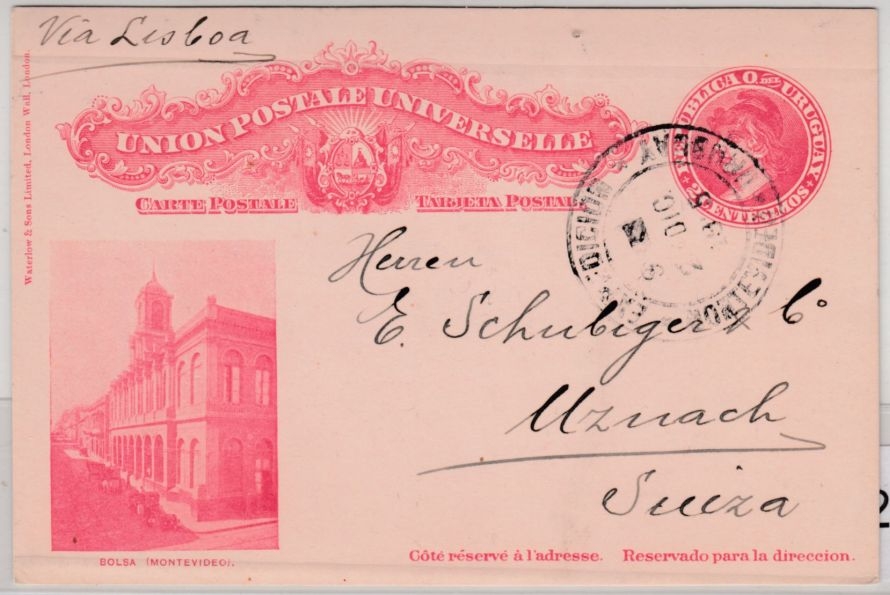 Via Lisboa
Waterlow & Sons Limited, London Wall, London.
UNION POSTALE UNIVERSELLE
CARTE POSTALE TARJETA POSTAL
REPUBLICA O. DEL URUGUAY
2 CENTESIMOS
MONTEVIDEO URUGUAY
DIC
Herren
E. Schubiger & Co
Uznach
Suiza
BOLSA (MONTEVIDEO).
Côté réservé à l'adresse. Reservado para la direccion.